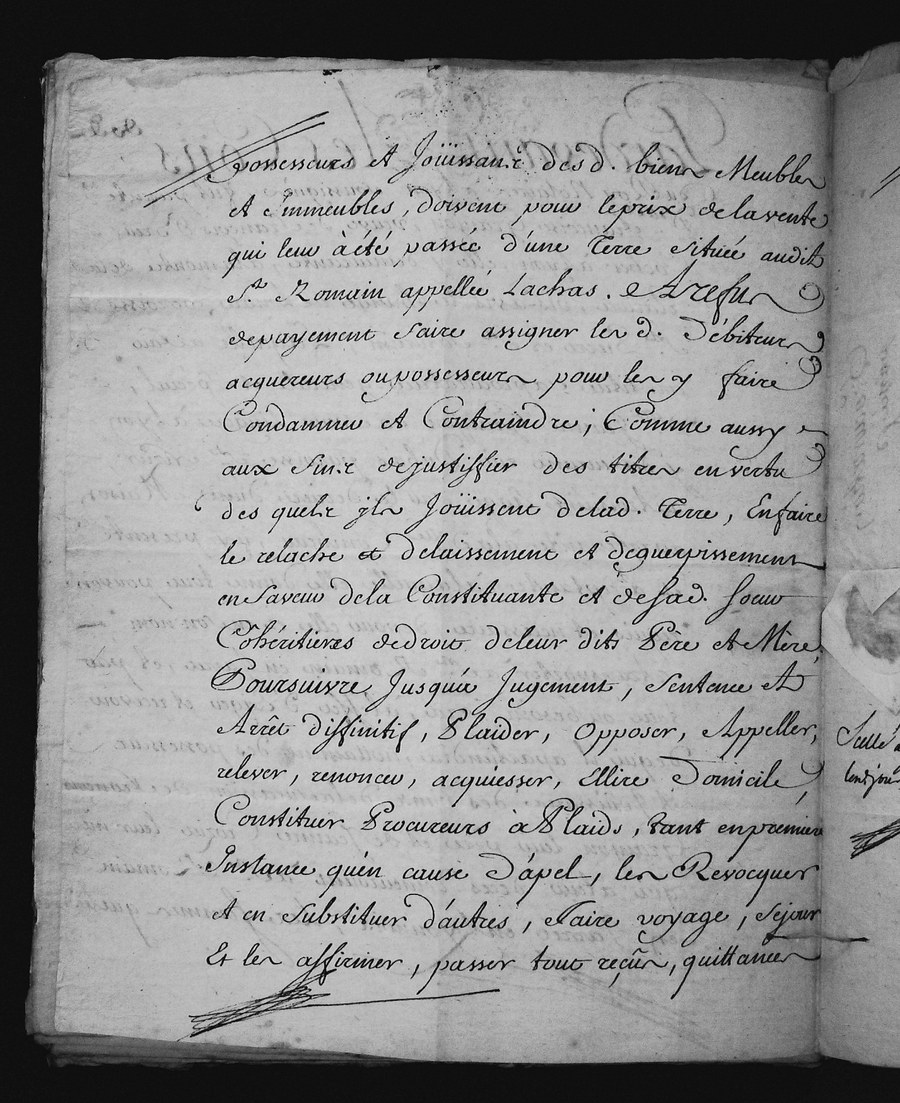 possesseurs et Joüissants des d. biens Meubles
et Immeubles, doivent pour le prix de la vente
qui leur à été passée d'une Terre située audit
St. Romain appellée Lachas. et A refus
de payement faire assigner les d. Débiteurs
acquereurs ou possesseurs pour les y faire
Condamner et Contraindre; Comme aussy
aux fins de justiffier des titres en vertu
des quels yls Joüissent de lad. Terre, En faire
le relache et delaissement et déguerpissement
en faveur de la Constituante et de sad. soeur
Cohéritieres de droit de leur dits Père et Mère,
Poursuivre Jusqu'a Jugement, sentence et
Arrêt diffinitif, Plaider, opposer, Appeller,
relever, renoncer, acquiesser, Ellire Domicile,
Constituer Procureurs à Plaids, tant en premiere
Instance qu'en cause d'apel, les Revocquer
et en substituer d'autres, faire voyage, séjour
Et les affirmer, passer tout reçus, quittances
Scellé